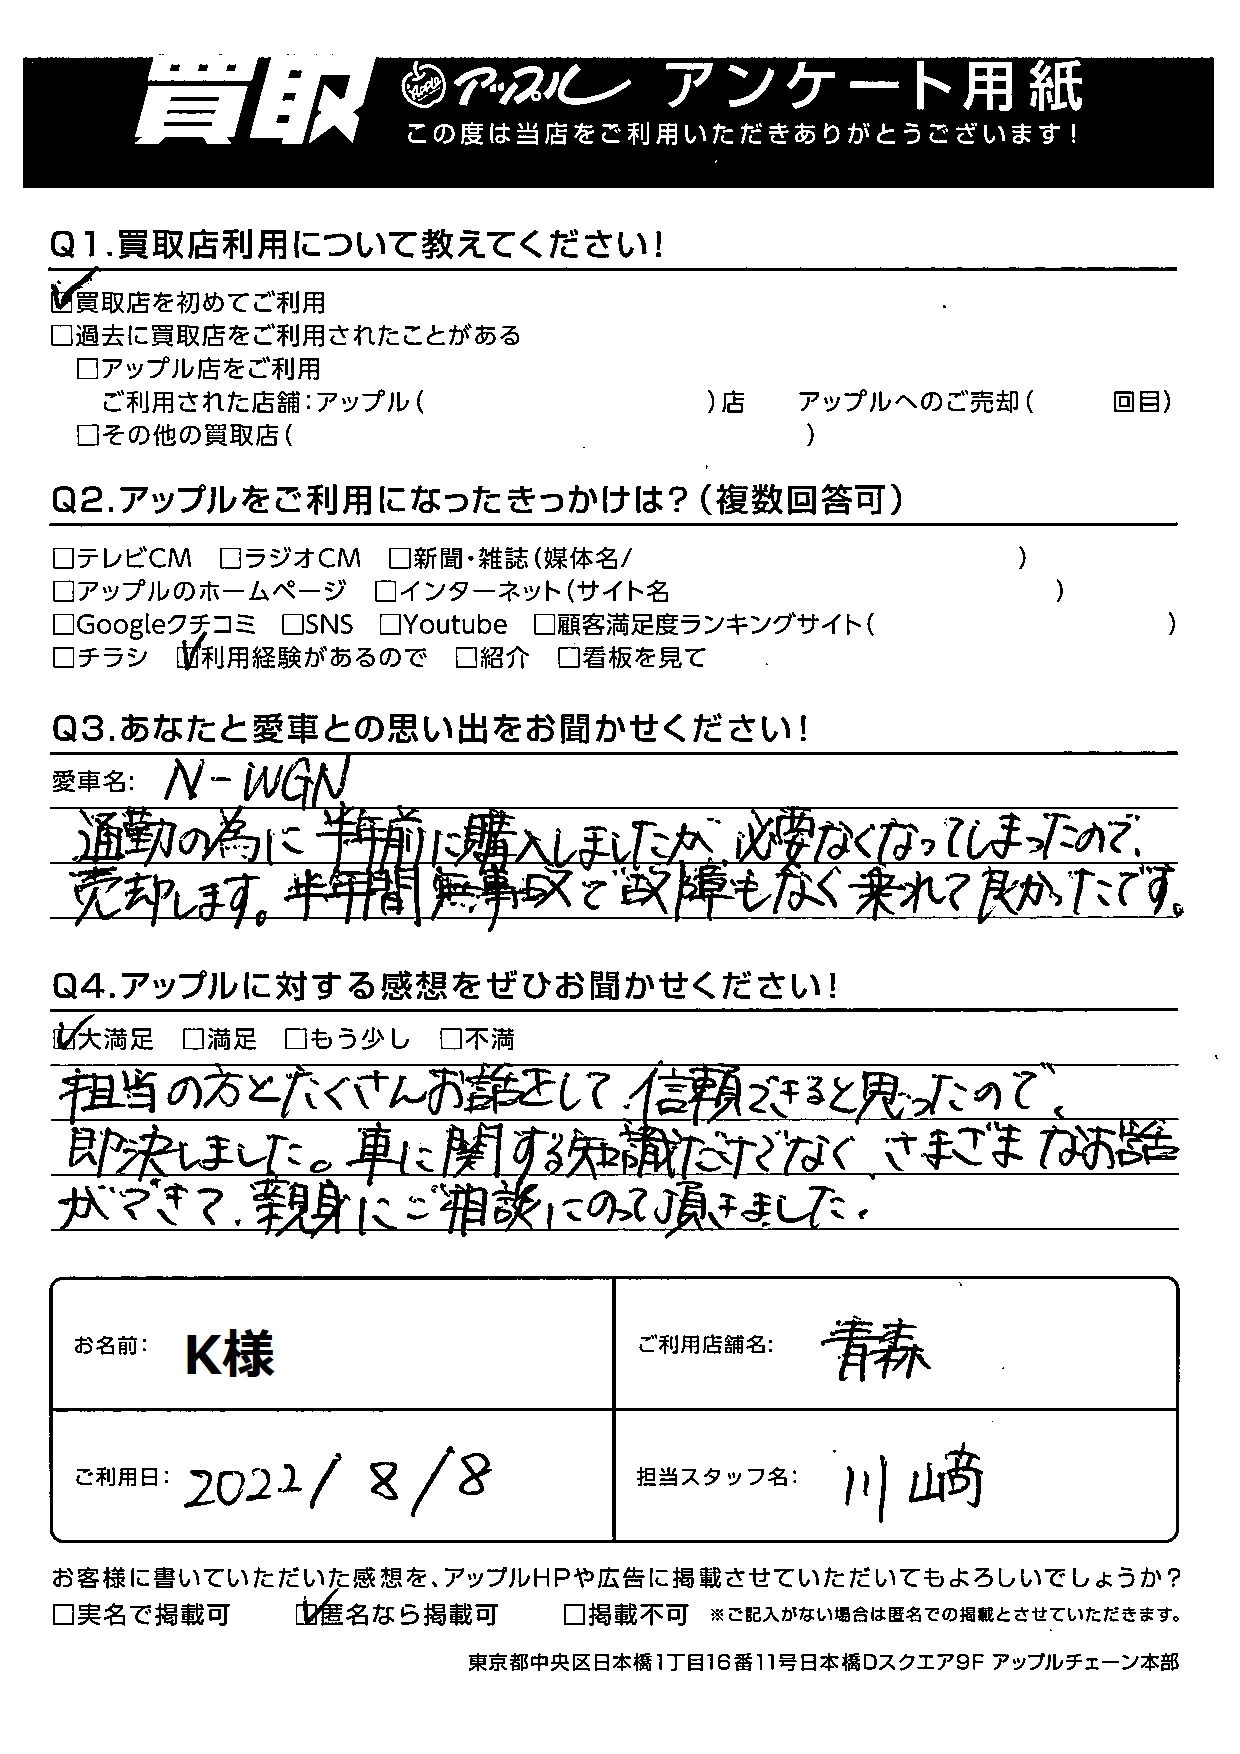 買取 Apple アップル アンケート用紙
この度は当店をご利用いただきありがとうございます!
Q1.買取店利用について教えてください!
☑買取店を初めてご利用
□過去に買取店をご利用されたことがある
□アップル店をご利用
ご利用された店舗:アップル( )店 アップルへのご売却( 回目)
□その他の買取店( )
Q2.アップルをご利用になったきっかけは?(複数回答可)
□テレビCM □ラジオCM □新聞・雑誌(媒体名/ )
□アップルのホームページ □インターネット(サイト名 )
□Googleクチコミ □SNS □Youtube □顧客満足度ランキングサイト( )
□チラシ ☑利用経験があるので □紹介 □看板を見て
Q3.あなたと愛車との思い出をお聞かせください!
愛車名: N-WGN
通勤の為に半年前に購入しましたが、必要なくなってしまったので、
売却します。半年間無事故で故障もなく来れて良かったです。
Q4.アップルに対する感想をぜひお聞かせください!
☑大満足 □満足 □もう少し □不満
担当の方とたくさんお話をして、信頼できると思ったので、
即決しました。車に関する知識だけでなく、さまざまなお話
ができて、親身にご相談にのって頂きました。
お名前: K様 ご利用店舗名: 青森
ご利用日: 2022/8/8 担当スタッフ名: 川崎
お客様に書いていただいた感想を、アップルHPや広告に掲載させていただいてもよろしいでしょうか?
□実名で掲載可 ☑匿名なら掲載可 □掲載不可 ※ご記入がない場合は匿名での掲載とさせていただきます。
東京都中央区日本橋1丁目16番11号日本橋Dスクエア9F アップルチェーン本部